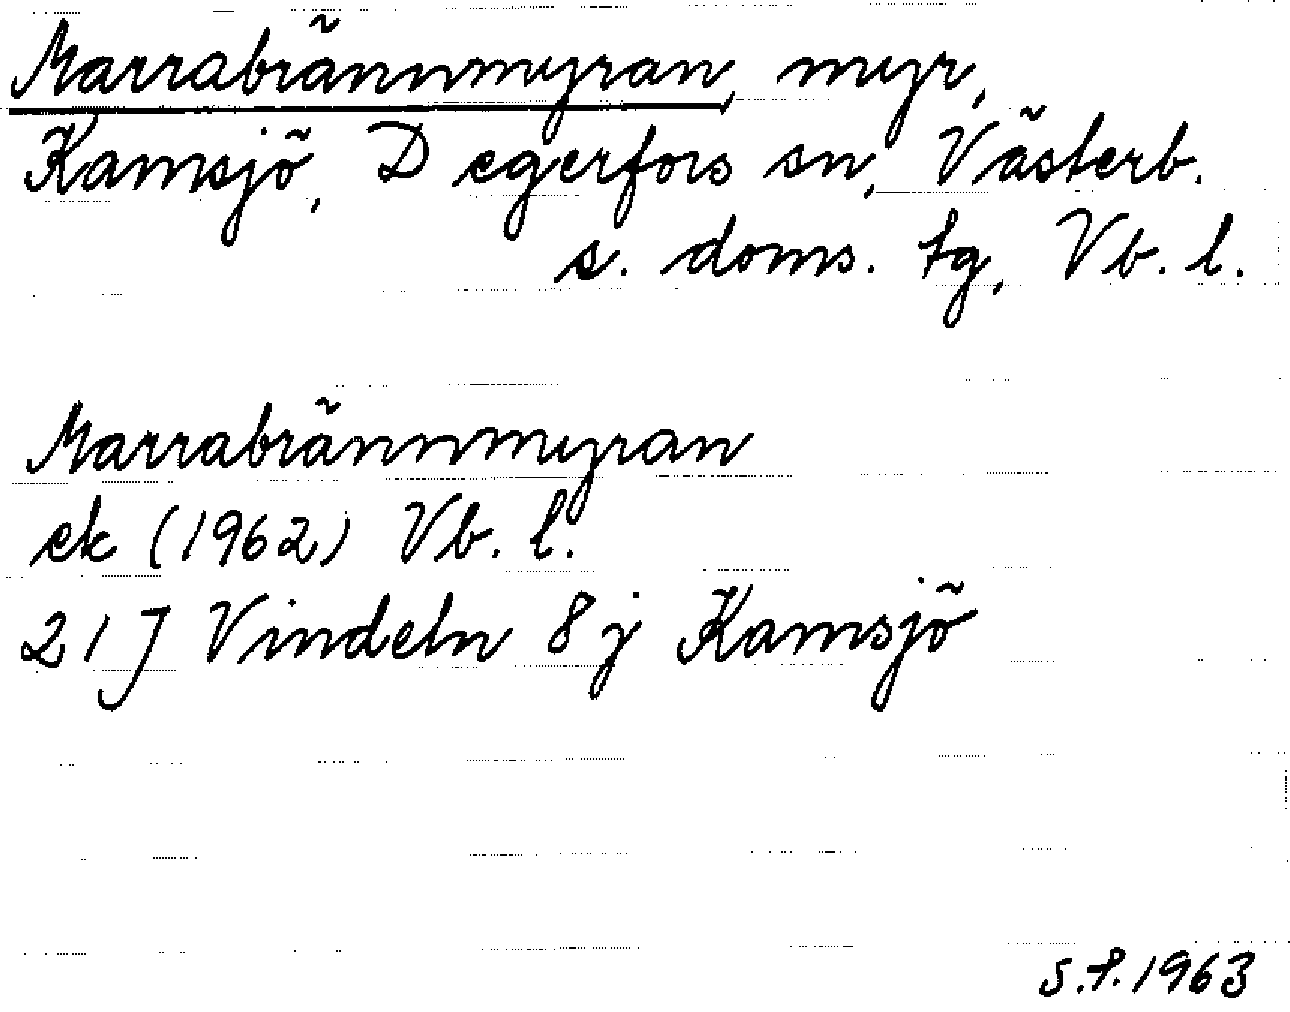 Marrabrännmyran, myr,
Kamsjö, Degerfors sn, Västerb.
s. doms. tg, Vb. l.
Marrabrännmyran
ek (1962) Vb. l.
21J Vindeln 8j Kamsjö
S.F. 1963